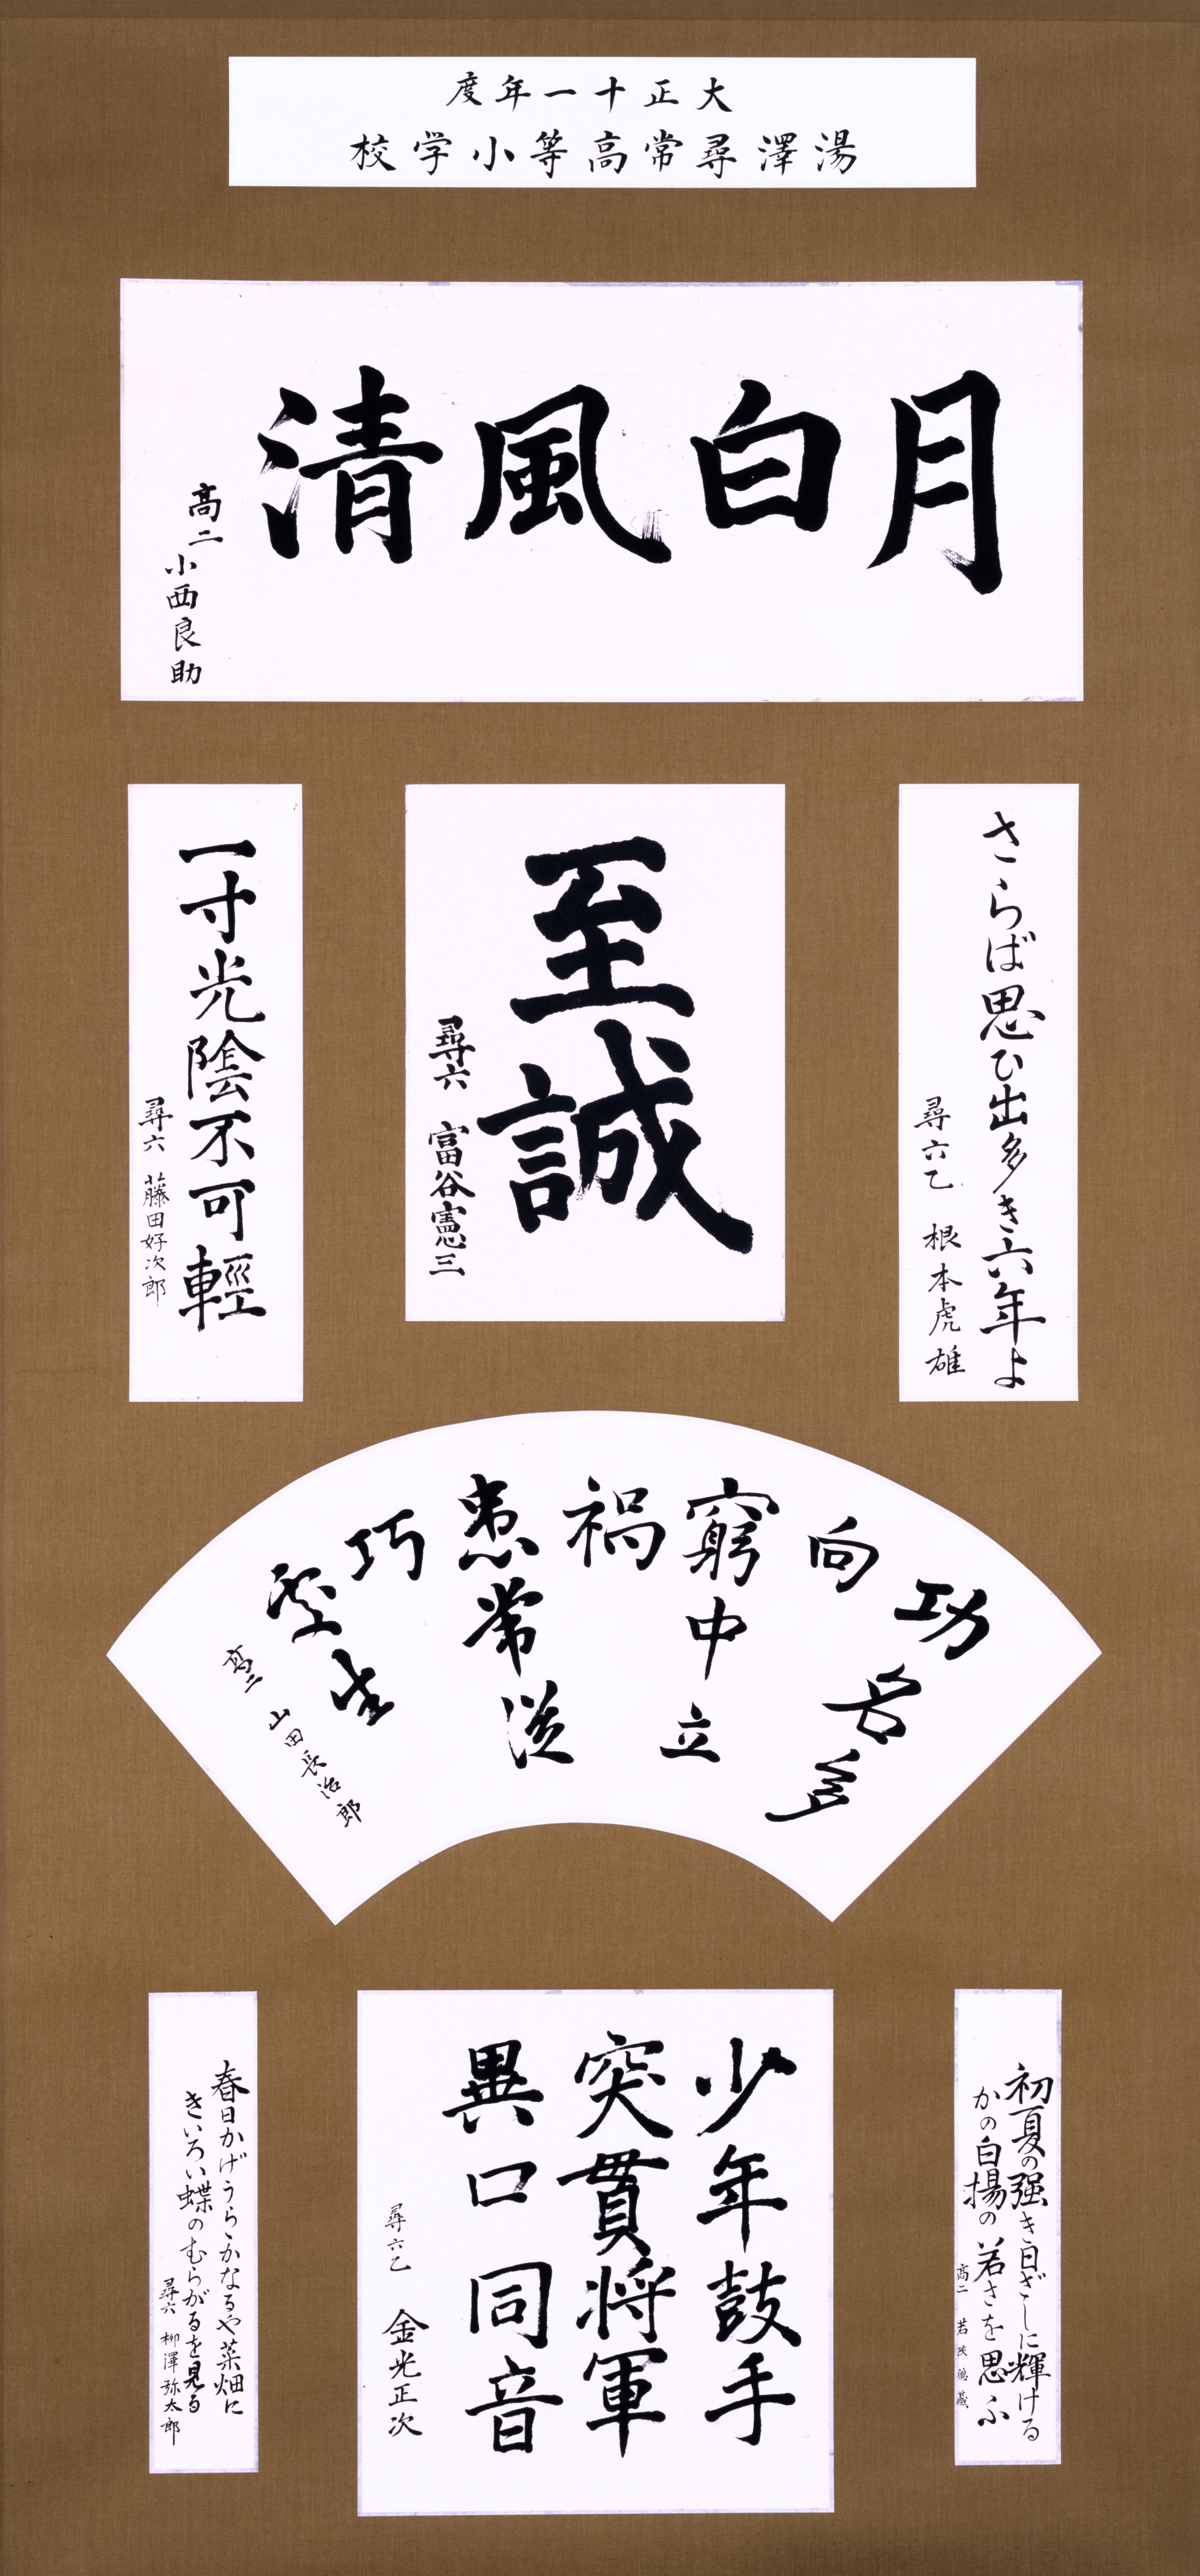 大正十一年度
湯澤尋常高等小学校
月白風清
高二
小西良助
さらば思ひ出多き六年よ
尋六乙 根本虎雄
至誠
尋六 富谷憲三
一寸光陰不可輕
尋六 藤田好次郎
功名多
向
窮中立
禍
患常従
巧
處生
高二 山田長治郎
初夏の強き日ざしに輝ける
かの白揚の若さを思ふ
高二 若狭徳蔵
少年鼓手
突貫将軍
異口同音
尋六乙 金光正次
春日かげうらゝかなるや菜畑に
きいろい蝶のむらがるを見る
尋六 柳澤弥太郎